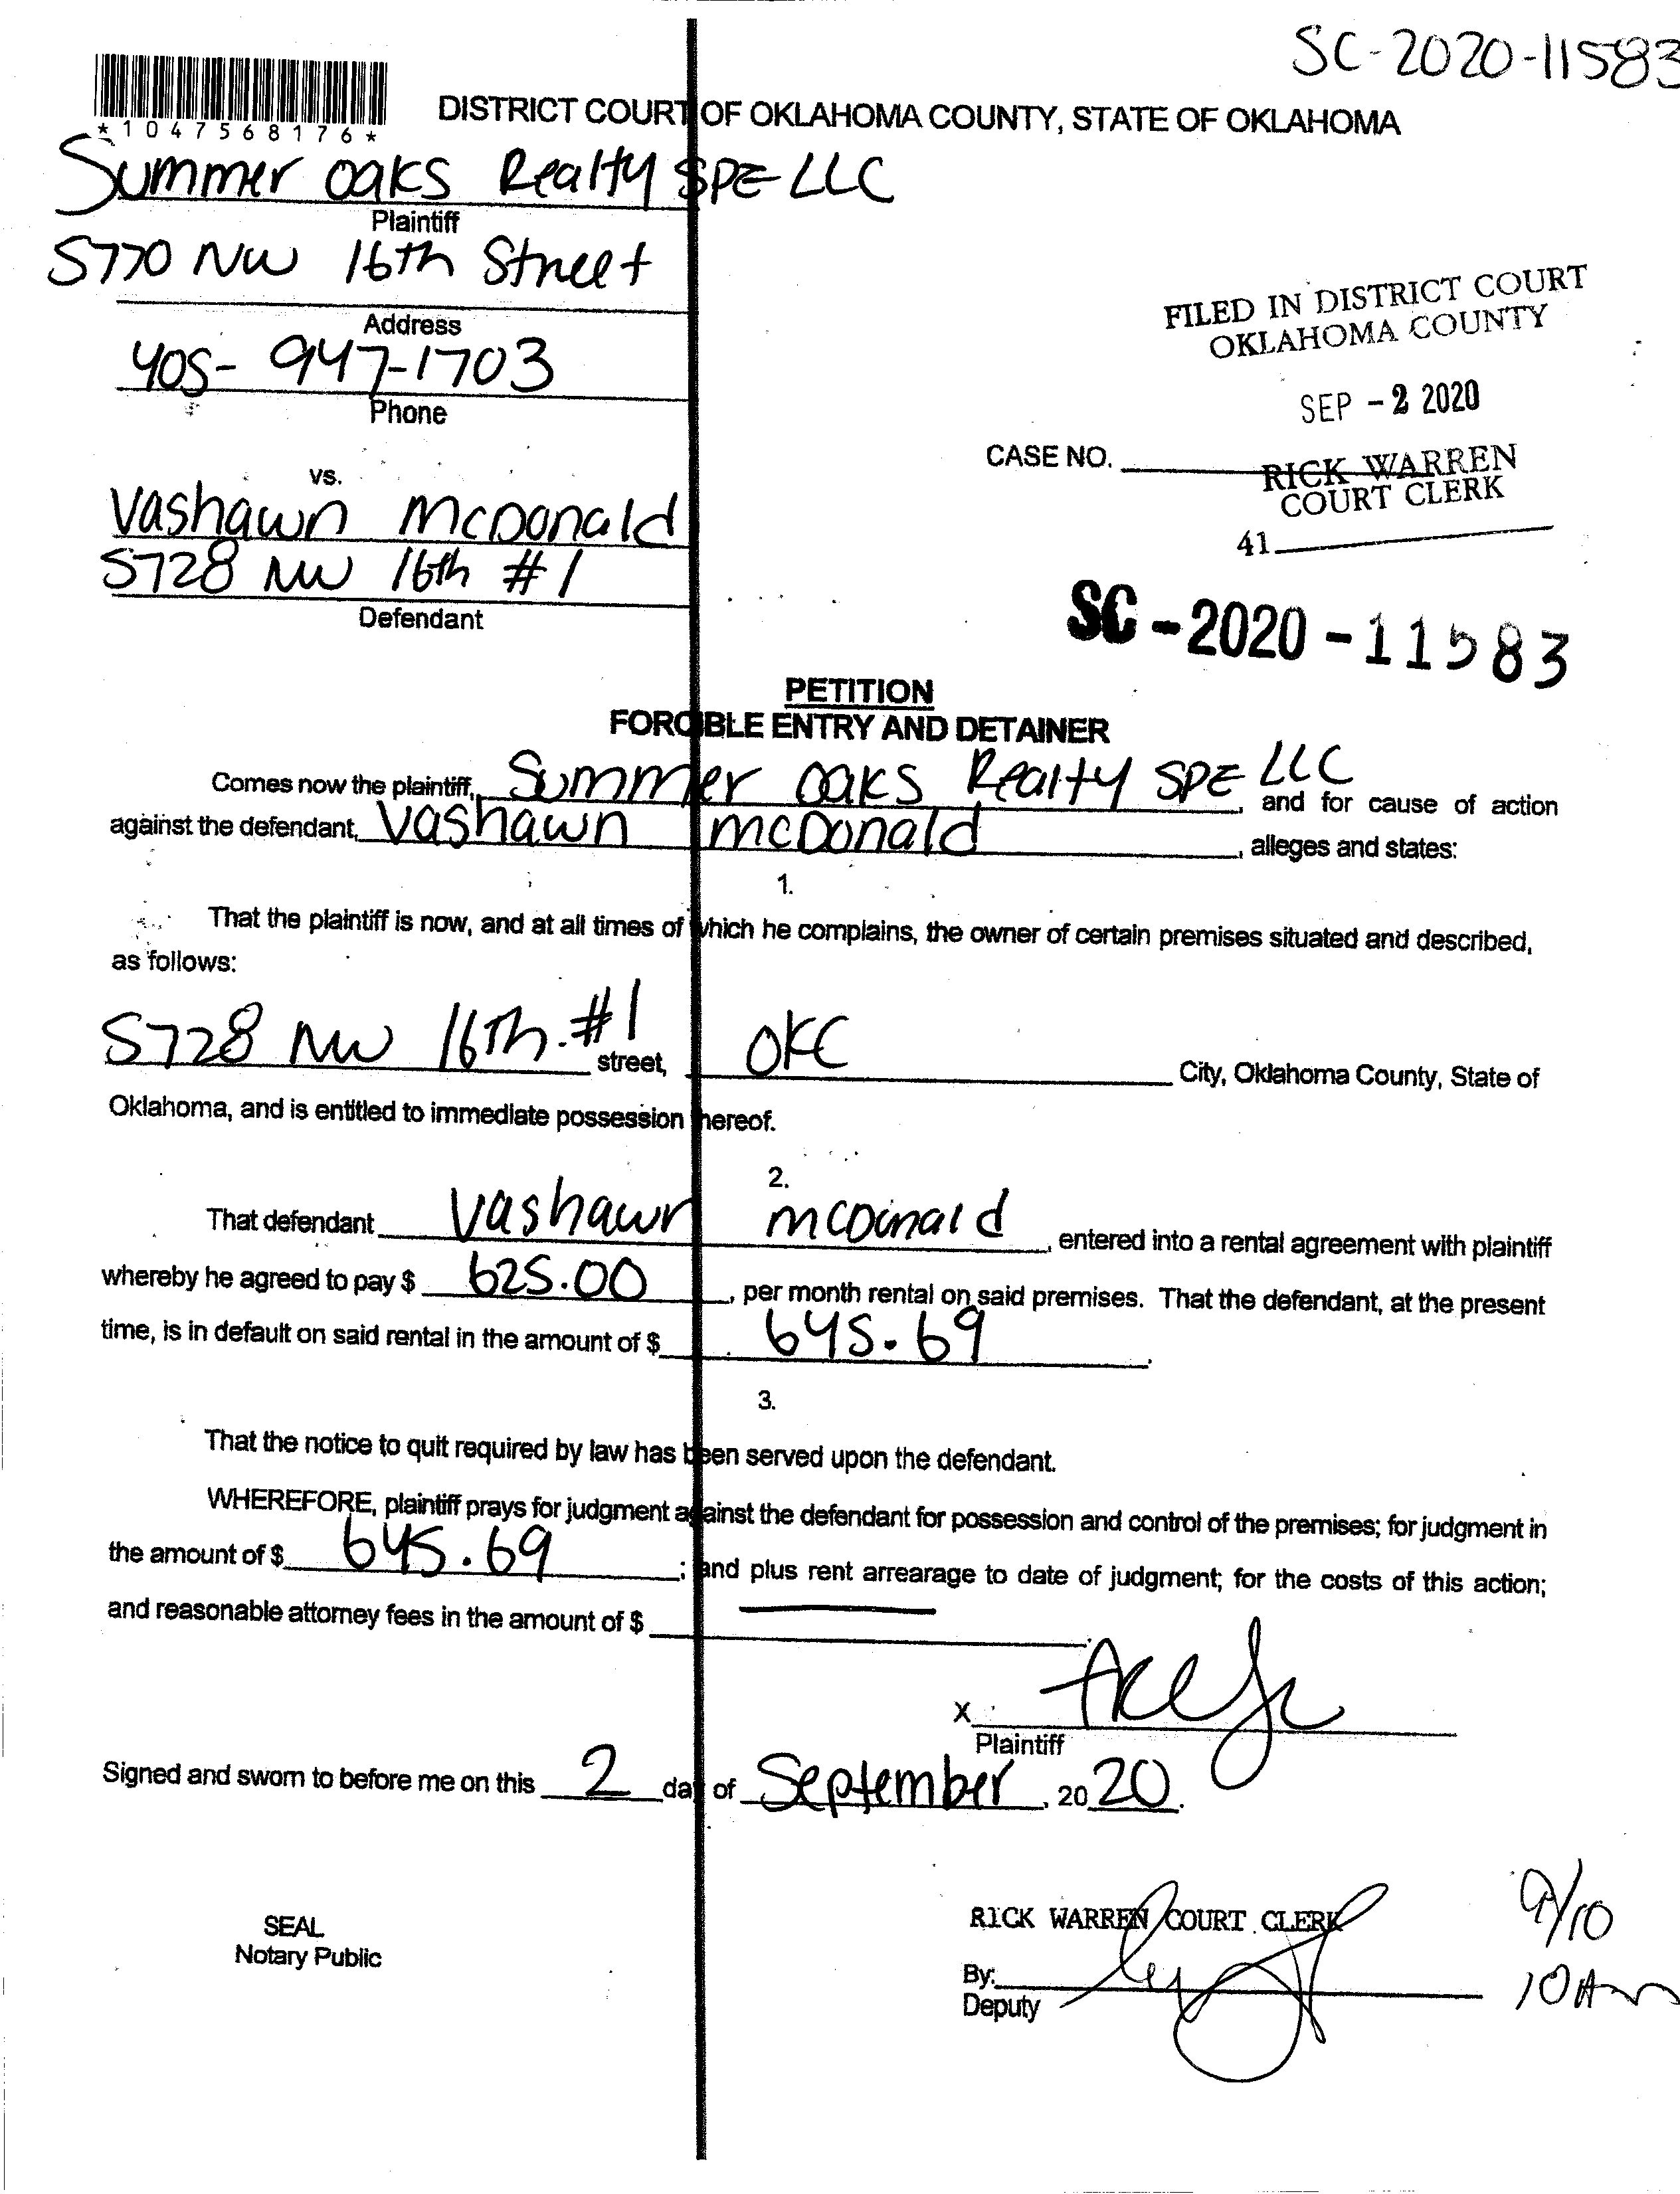 SC-2020-11583
*1047568176*
DISTRICT COURT OF OKLAHOMA COUNTY, STATE OF OKLAHOMA
Summer Oaks Realty SPE LLC
Plaintiff
5770 NW 16th Street
Address
405-947-1703
Phone
FILED IN DISTRICT COURT
OKLAHOMA COUNTY
SEP -2 2020
CASE NO.
RICK WARREN
COURT CLERK
41
vs.
Vashawn McDonald
5728 NW 16th #1
Defendant
SC-2020-11583
PETITION
FORCIBLE ENTRY AND DETAINER
Comes now the plaintiff, Summer Oaks Realty SPE LLC, and for cause of action
against the defendant, Vashawn McDonald, alleges and states:
1.
That the plaintiff is now, and at all times of which he complains, the owner of certain premises situated and described,
as follows:
5728 NW 16th. #1 street, OKC City, Oklahoma County, State of
Oklahoma, and is entitled to immediate possession hereof.
2.
That defendant Vashawn McDinald, entered into a rental agreement with plaintiff
whereby he agreed to pay $ 625.00, per month rental on said premises. That the defendant, at the present
time, is in default on said rental in the amount of $ 645.69.
3.
That the notice to quit required by law has been served upon the defendant.
WHEREFORE, plaintiff prays for judgment against the defendant for possession and control of the premises; for judgment in
the amount of $ 645.69; and plus rent arrearage to date of judgment; for the costs of this action;
and reasonable attorney fees in the amount of $
X
Plaintiff
Signed and sworn to before me on this 2 day of September, 2020.
SEAL
Notary Public
RICK WARREN COURT CLERK
By:
Deputy
9/10
10 Am